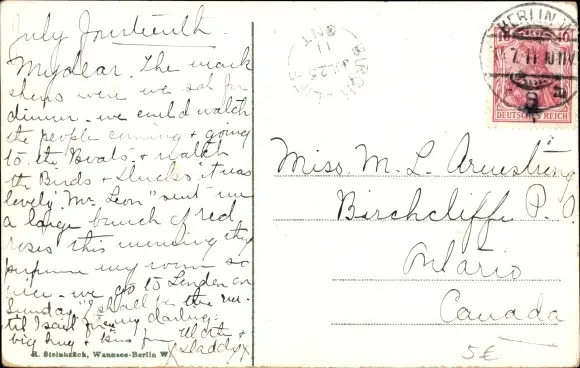 July fourteenth
My dear. The mark
shews were we sat for
dinner. we could watch
the people coming & going
to the Boats. & watch
the Birds & Ducks. it was
lovely. Mr. Leon" sent me
a large bunch of red
roses this morning they
perfume my room so
nice. we go to London on
Sunday. I shall be there un-
til I sail for my darling.
big hug & kiss from &
Daddy
R. Steinbrück, Wannsee-Berlin W.
BIRCH CLIFF
JUL 25
11
ONT
BERLIN W
7. 11. 10-11 V
9
DEUTSCHES REICH
10 10
Miss. M. L. Armstrong
Birchcliffe P. O.
Ontario
Canada
5€